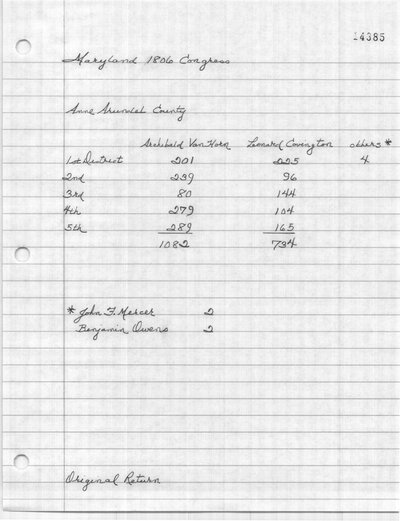 14385
Maryland 1806 Congress
Anne Arundel County
Archibald Van Horn Leonard Covington others *
1st District 201 225 4
2nd 239 96
3rd 80 144
4th 279 104
5th 289 165
1082 734
* John F. Mercer 2
Benjamin Owens 2
Original Return